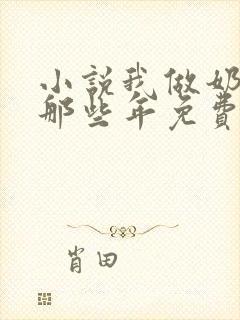 小説我做奶
那些年免費
肖田